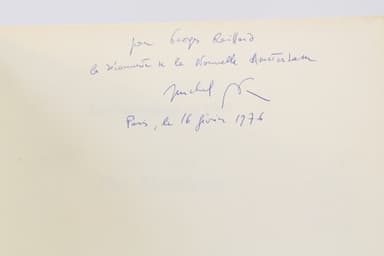 pour Georges Raillard
la découverte de la Nouvelle Amsterdam
Michel
Paris, le 16 février 1976